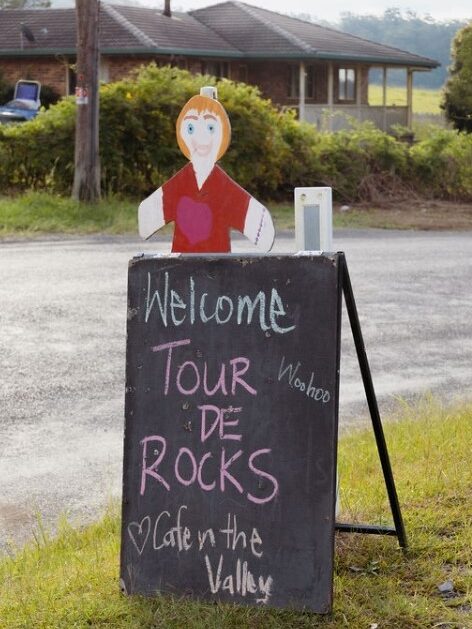 Welcome
TOUR
Woohoo
DE
ROCKS
♡ Cafe n the
Valley